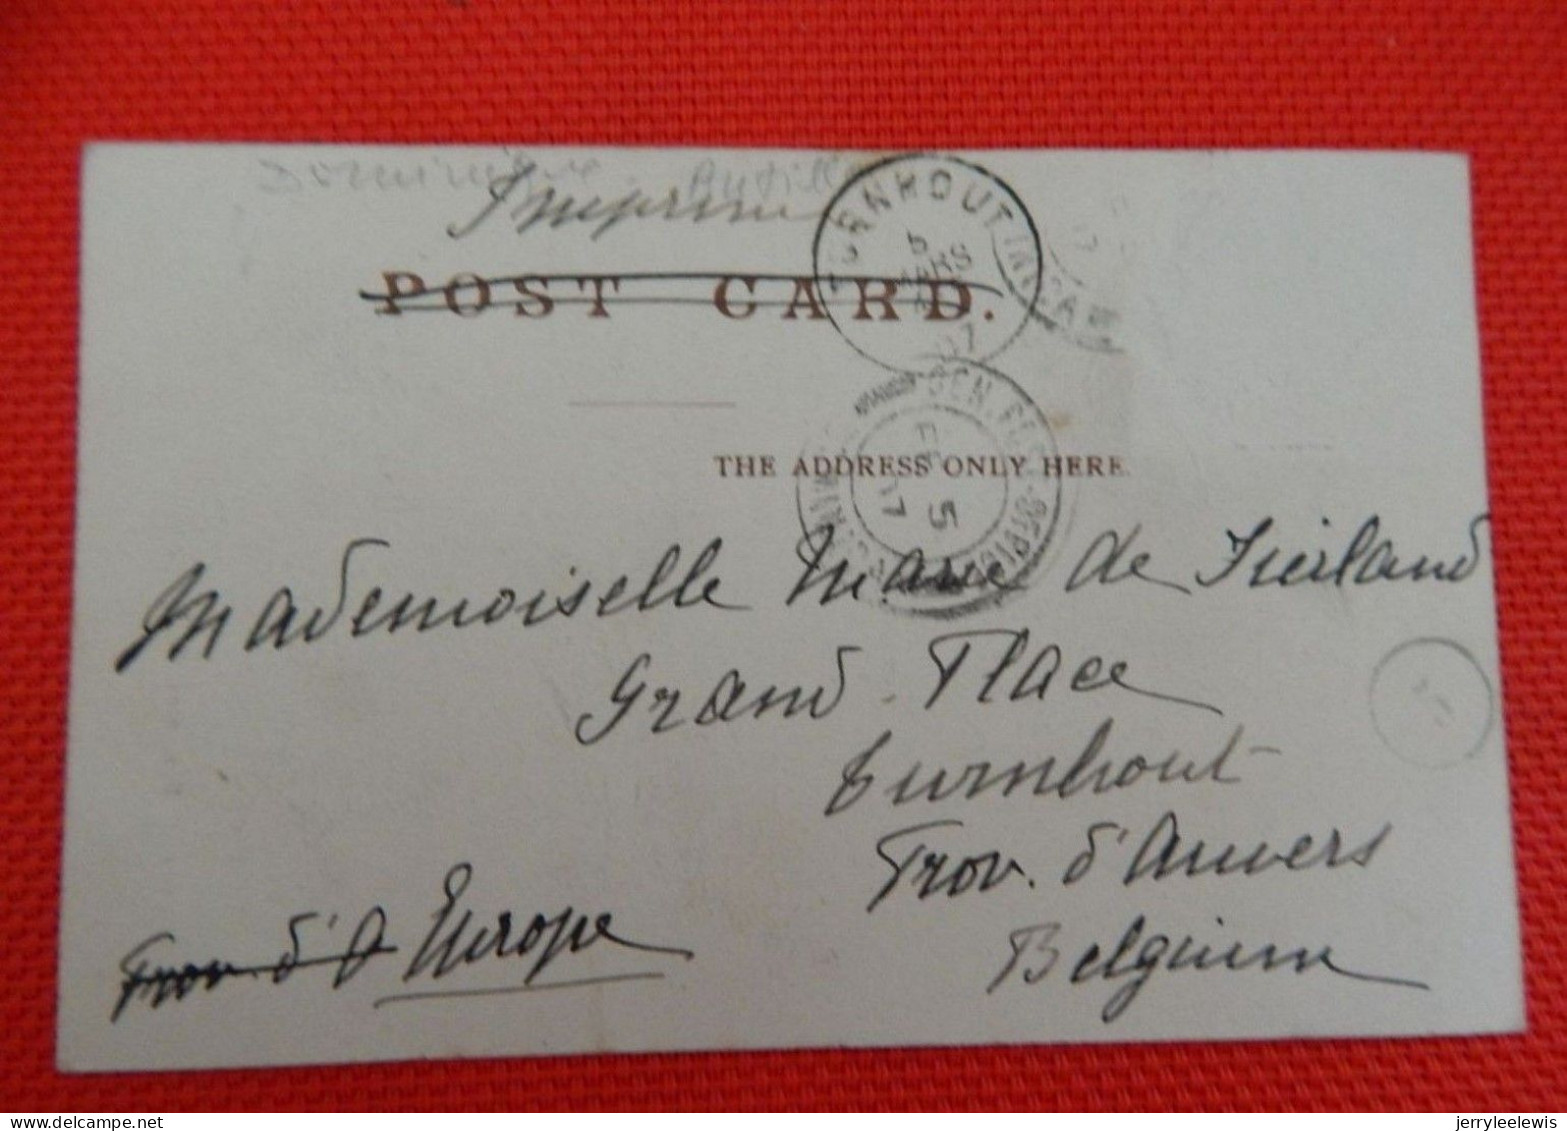 Dominique. Antill
Imprimé
POST CARD.
TURNHOUT
5
MARS
07
GEN. POS
FE 5
07
THE ADDRESS ONLY HERE
Mademoiselle Marie de Fierland
Grand Place
Turnhout
Prov. d'Anvers
Prov. d'A Europe
Belgium
jerryleelewis